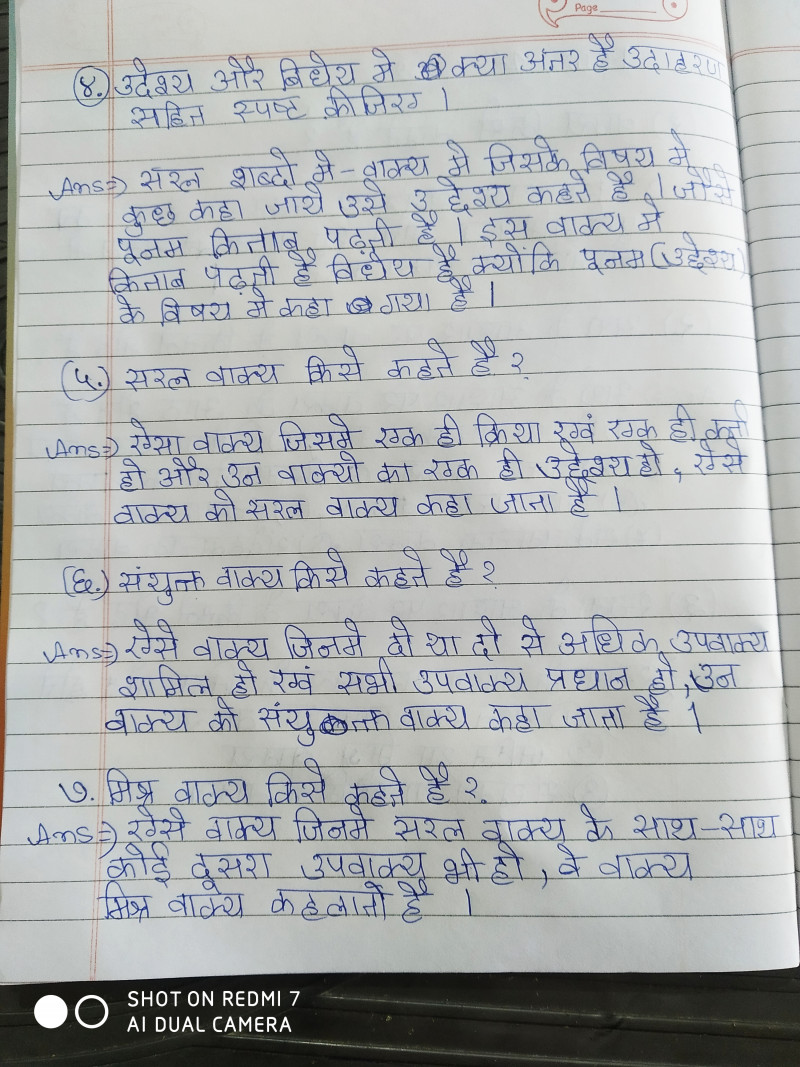 Page
४. उदेश्य और विधेय मे क्या अंतर है उदाहरण
सहित स्पष्ट कीजिए ।
Ans⇒ सरल शब्दो मे - वाक्य मे जिसके विषय मे
कुछ कहा जाये उसे उद्देश्य कहते है । जैसे
पूनम किताब पढ़ती है । इस वाक्य मे
किताब पढ़ती है विधेय है क्योंकि पूनम (उद्देश्य)
के विषय मे कहा गया है ।
(५.) सरल वाक्य किसे कहते है ?
Ans⇒ ऐसा वाक्य जिसमे एक ही क्रिया एवं एक ही कर्ता
हो और उन वाक्यो का एक ही उद्देश्य हो , ऐसे
वाक्य को सरल वाक्य कहा जाता है ।
(६.) संयुक्त वाक्य किसे कहते है ?
Ans⇒ ऐसे वाक्य जिनमे दो या दो से अधिक उपवाक्य
शामिल हो एवं सभी उपवाक्य प्रधान हो , उन
वाक्य को संयुक्त वाक्य कहा जाता है ।
७. मिश्र वाक्य किसे कहते है ?
Ans⇒ ऐसे वाक्य जिनमे सरल वाक्य के साथ-साथ
कोई दूसरा उपवाक्य भी हो , वे वाक्य
मिश्र वाक्य कहलाते है ।
SHOT ON REDMI 7
AI DUAL CAMERA